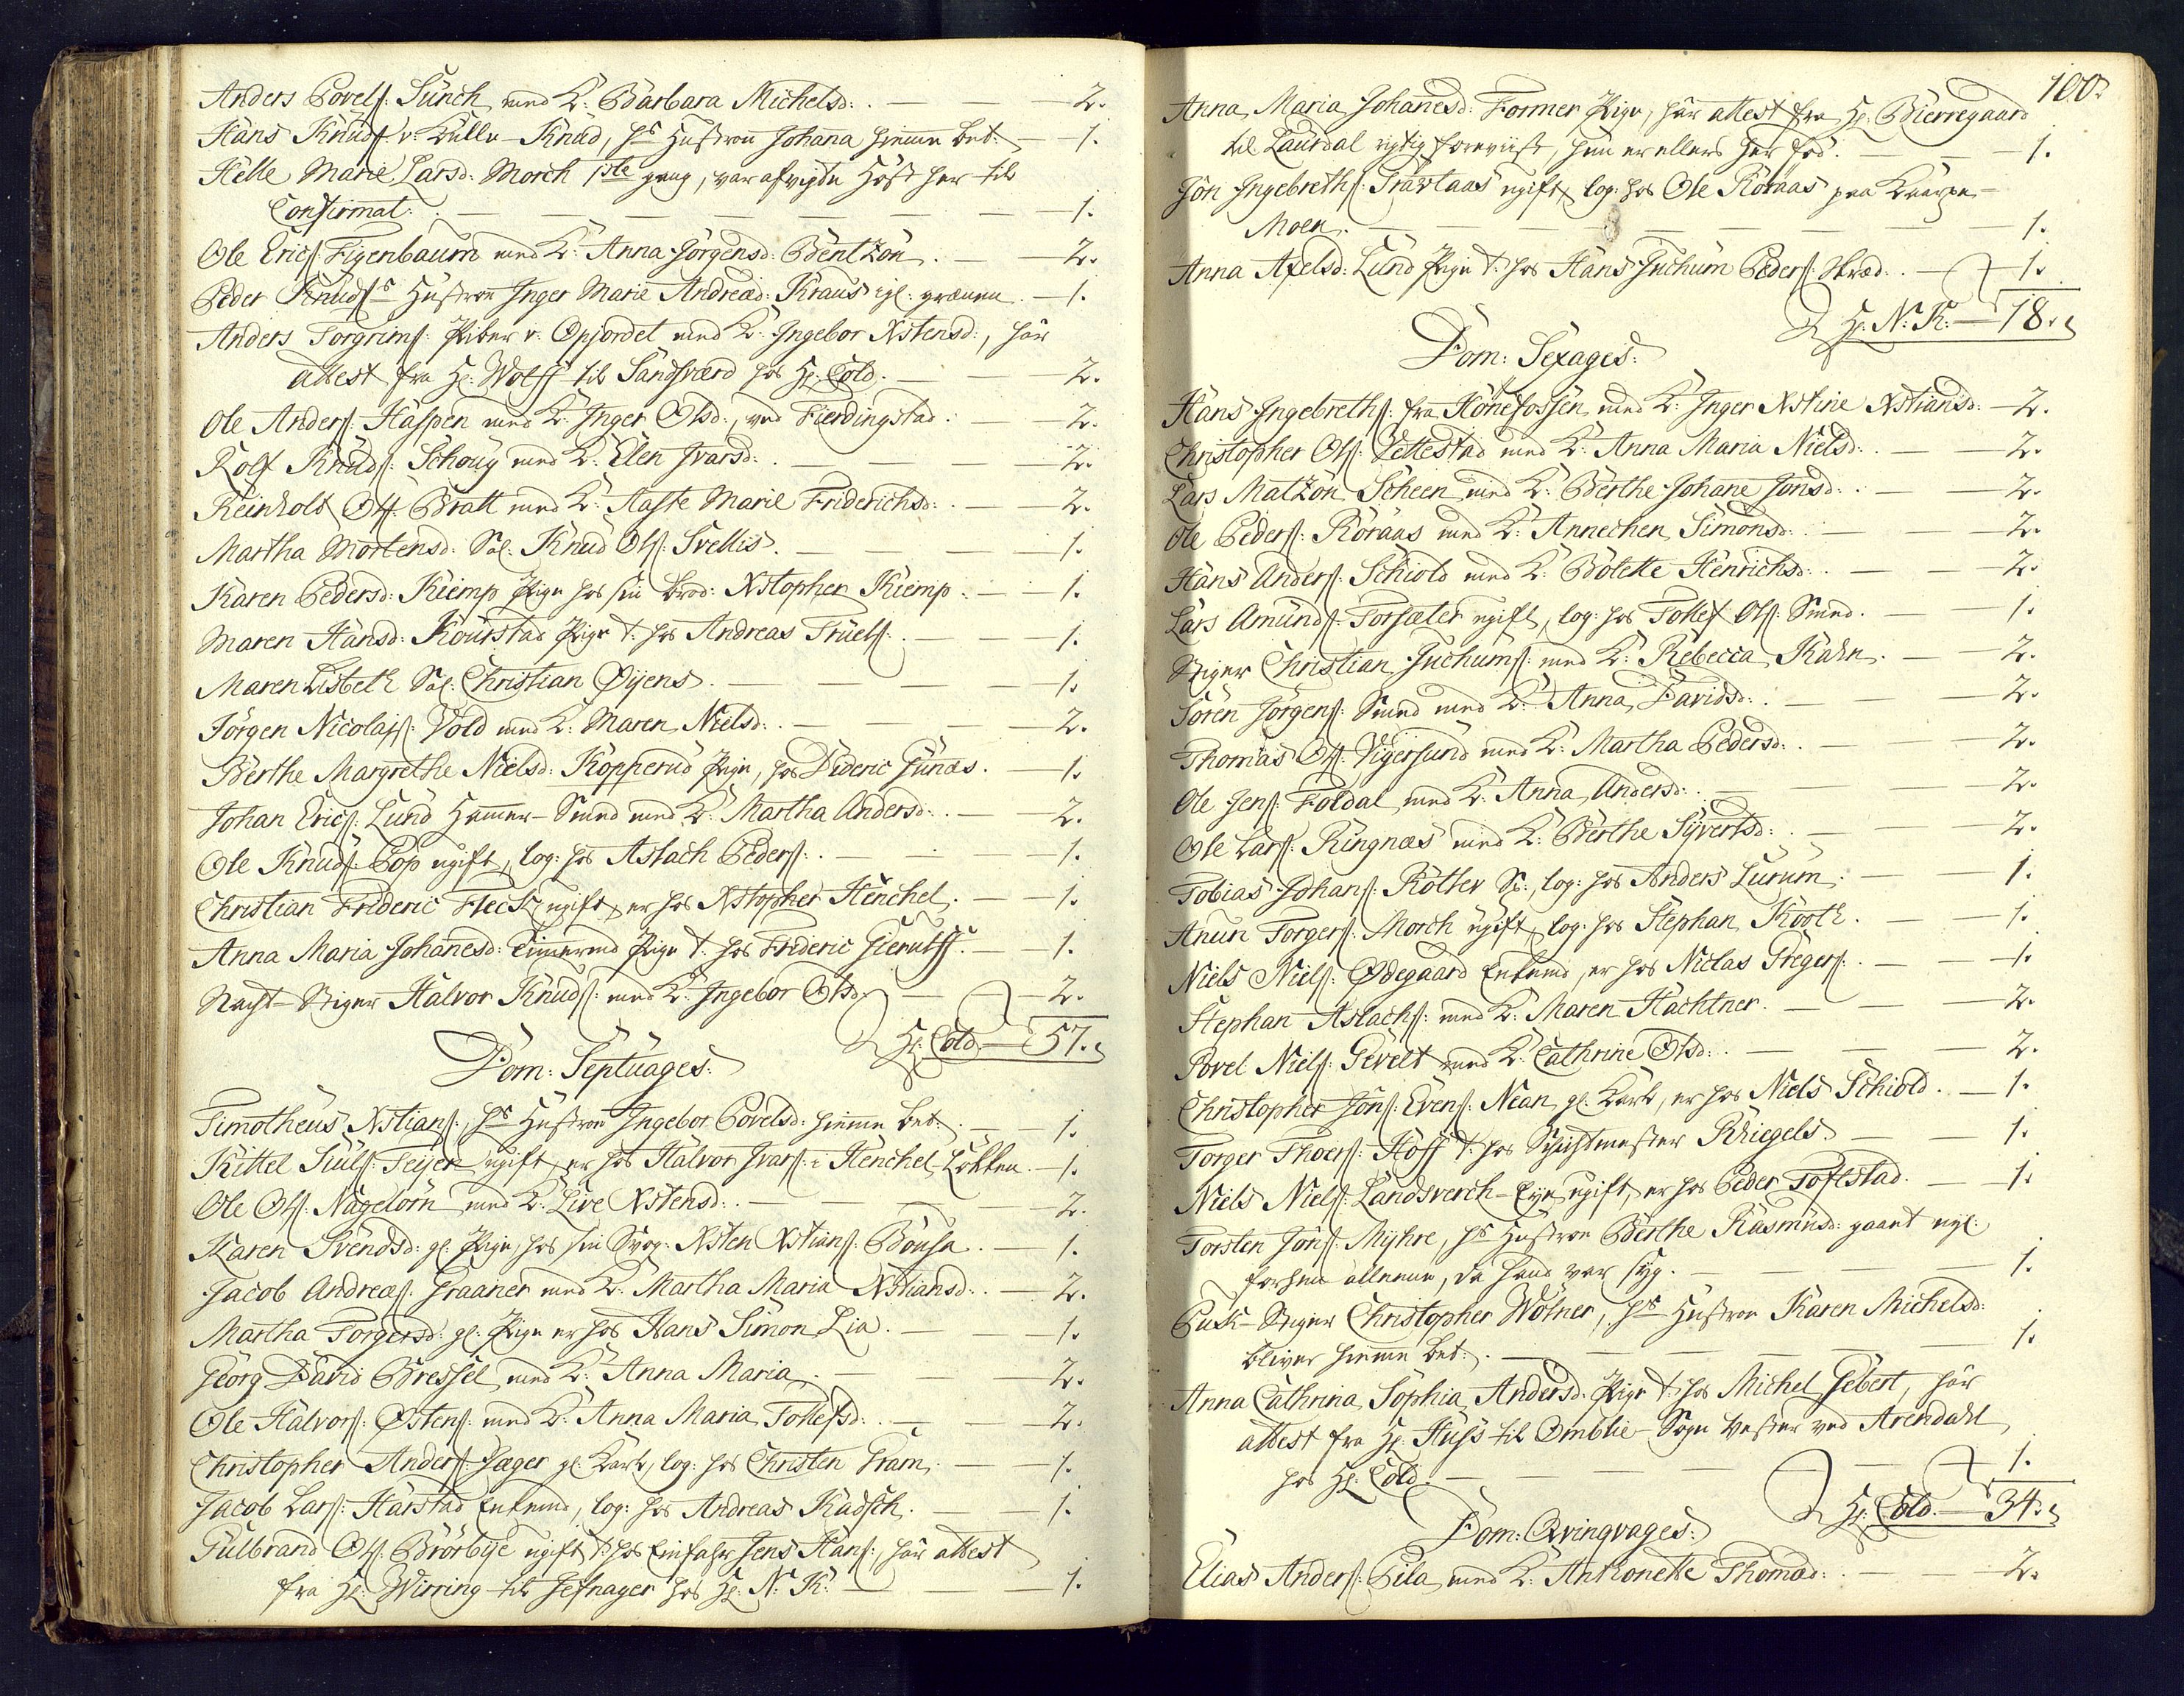 Anders Povels: Sünch med K: Barbara Michelsd: . — — — 2.
Hans Knuds: v: Kulle-Knud, hs Hustroe Johana hiemme bet: — 1.
Helle Marie Larsd: Morch 1ste gang, var afvigte Höst her til
Confirmat: . — — — — — — 1.
Ole Erics: Figenbaum med K: Anna Jörgensd: Bentzön . — — 2.
Peder Knuds:s Hustroe Inger Marie Andreæd: Kraus igl: — 1.
Anders Torgrims: v: Opjordet med K: Ingebor Xstensd:, har
attest fra Hr: Wolff til Sandsværd hos Hr: Cold . — — 2.
Ole Anders: Haspen med K: Inger Olsd:, ved Fierdingstad . — 2.
Rolf Knuds: Schoug med K: Elen Ivarsd: . — — — 2.
Reinholt Ols: Bratt med K: Aaste Marie Friderichsd: . — — 2.
Martha Mortensd: Sal: Knud Ols: Svellis . — — — 1.
Karen Pedersd: Kiemp Pige hos sin Brod: Xstopher Kiemp . — 1.
Maren Hansd: Kourstad Pige t: hos Andreas Truels: . — — 1.
Maren Lisbeth Sal: Christian Öyens . — — — 1.
Jörgen Nicolajs: Vold med K: Maren Nielsd: . — — — 2.
Berthe Margrethe Nielsd: Kopperud Pige, hos Dideric Junæs . — 1.
Johan Erics: Lund Hammer-Smed med K: Martha Andersd: . — 2.
Ole Knuds: Pop ugift, log: hos Aslach Peders: . — — 1.
Christian Frideric Fleck ugift, er hos Xstopher Henchel . — 1.
Anna Maria Johanesd: Pige t: hos Frideric Gierulff . — 1.
Nacht-Stiger Halvor Knuds: med K: Ingebor Olsd: — 2.
Hr: Cold — 57.
Dom: Septuages:
Timotheus Xstians:, hs Hustroe Ingebor Povelsd: hiemme bet: . — 1.
Kittel Siuls: Teijen ugift, er hos Halvor Ivars: i Henchel-Lökken . — 1.
Ole Ols: Nagelörn med K: Live Xstensd: . — — 2.
Karen Svendsd: gl: Pige, hos sin Svog: Xsten Xstians: Bönsa . — 1.
Jacob Andreas: Graaner med K: Martha Maria Xstiansd: . — 2.
Martha Torgersd: gl: Pige er hos Hans Simon Lia . — — 1.
Georg David Bressel med K: Anna Maria . — — 2.
Ole Halvors: Östens: med K: Anna Maria Tollefsd: . — 2.
Christopher Anders: Jæger gl: Karl, log: hos Christen Fram . — 1.
Jacob Lars: Harstad Enkemd, log: hos Andreas Kadsch . — 1.
Gulbrand Ols: Brörbye ugift t: hos Einfahr Jens Hans:, har attest
fra Hr: Wirring til Jefnager hos Hr: N: K: — 1.
100.
Anna Maria Johanesd: Former Pige, har attest fra Hr: Bierregaard
til Laurdal rigtig foreviist, hun er ellers her föd . — — 1.
Jon Ingebreths: Travlaas ugift, log: hos Ole Roraas paa
Moen . — — — — — — 1.
Anna Axelsd: Lund Pige t: hos Hans Juchum Peders: Skræd: . — 1.
Hr: N: K: — 18.
Dom: Sexages:
Hans Ingebreths: fra Hönefossen med K: Inger Xstine Xstiansd: — 2.
Christopher Ols: Vettestad med K: Anna Maria Nielsd: . — 2.
Lars Matzön Scheen med K: Berthe Johane Jonsd: . — 2.
Ole Peders: Roraas med K: Annechen Simonsd: . — — 2.
Hans Anders: Schiold med K: Bolette Henrichsd: . — — 2.
Lars Amunds: Forsæter ugift, log: hos Tollef Ols: Smed . — 1.
Stiger Christian Juchums: med K: Rebecca Kahn . — 2.
Sören Jörgens: Smed med K: Anna Davidsd: . — — 2.
Thomas Ols: Vigersund med K: Martha Pedersd: . — — 2.
Ole Jens: Foldal med K: Anna Andersd: . — — 2.
Ole Lars: Ringnæs med K: Berthe Syvertsd: . — — 2.
Tobias Johans: Rötler Sr:, log: hos Anders Lurum . — 1.
Anun Torgers: Morch ugift, log: hos Stephan Kooth . — 1.
Niels Niels: Ödegaard Enkemd, er hos Niclas Gregers: . — 1.
Stephan Aslachs: med K: Maren Hachtner . — — 2.
Povel Niels: Gevelt med K: Cathrine Olsd: . — — 2.
Christopher Jons: Evens: Nean gl: Karl, er hos Niels Schiold . — 1.
Torger Thoers: Hoff t: hos Schichtmester Kriegels: — — 1.
Niels Niels: Landsverch-Eye ugift, er hos Peder Toftstad . — 1.
Torsten Jons: Myhre, hs Hustroe Berthe Rasmusd: gaaet igl:
forhen alleene, da hand var syg . — — — 1.
Puk-Stiger Christopher Wölner, hs Hustroe Karen Michelsd:
bliver hiemme bet: . — — — — 1.
Anna Cathrina Sophia Andersd: Pige t: hos Michel Gebert, har
attest fra Hr: Huss til Omblie-Sogn Vester ved Arendahl
hos Hr: Cold . — — — — 1.
Hr: Cold — 34.
Dom: Qvinqvages:
Elias Anders: Pila med K: Anthonette Thomæd: . — — 2.